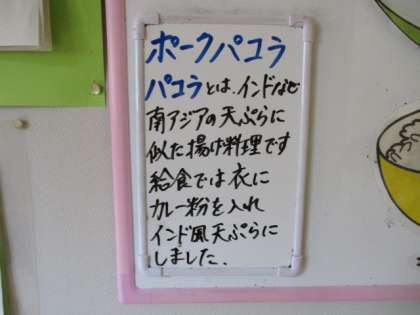 ポークパコラ
パコラとは、インドなど
南アジアの天ぷらに
似た揚げ料理です
給食では衣に
カレー粉を入れ
インド風天ぷらに
しました、